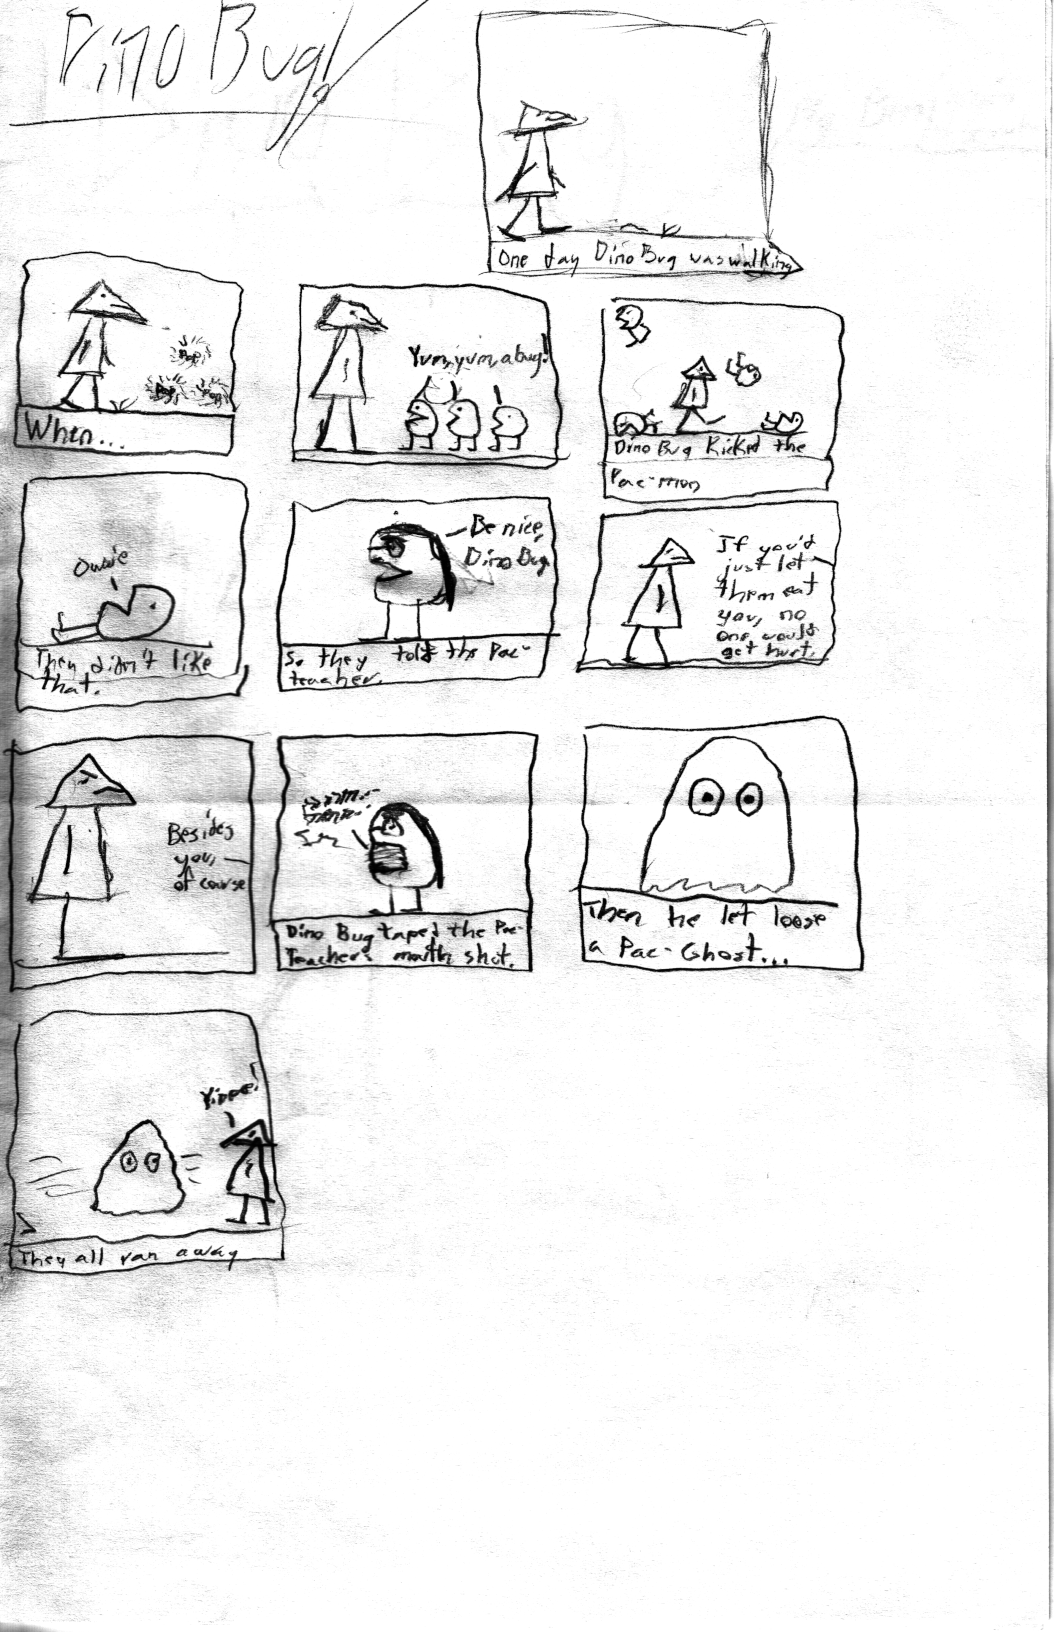 Dino Bug!
One day Dino Bug was walking
Pop
Pop
Pop
When...
Yum, yum, a bug!
Dino Bug Kicked the
Pac-men
Owwie
They didn't like
that.
Be nice,
Dino Bug
So they told the Pac-
teacher.
If you'd
just let
them eat
you, no
one would
get hurt.
Besides
you,
of course
Dino Bug taped the Pac-
Teacher's mouth shut.
Then he let loose
a Pac-Ghost...
Yippe!
They all ran away